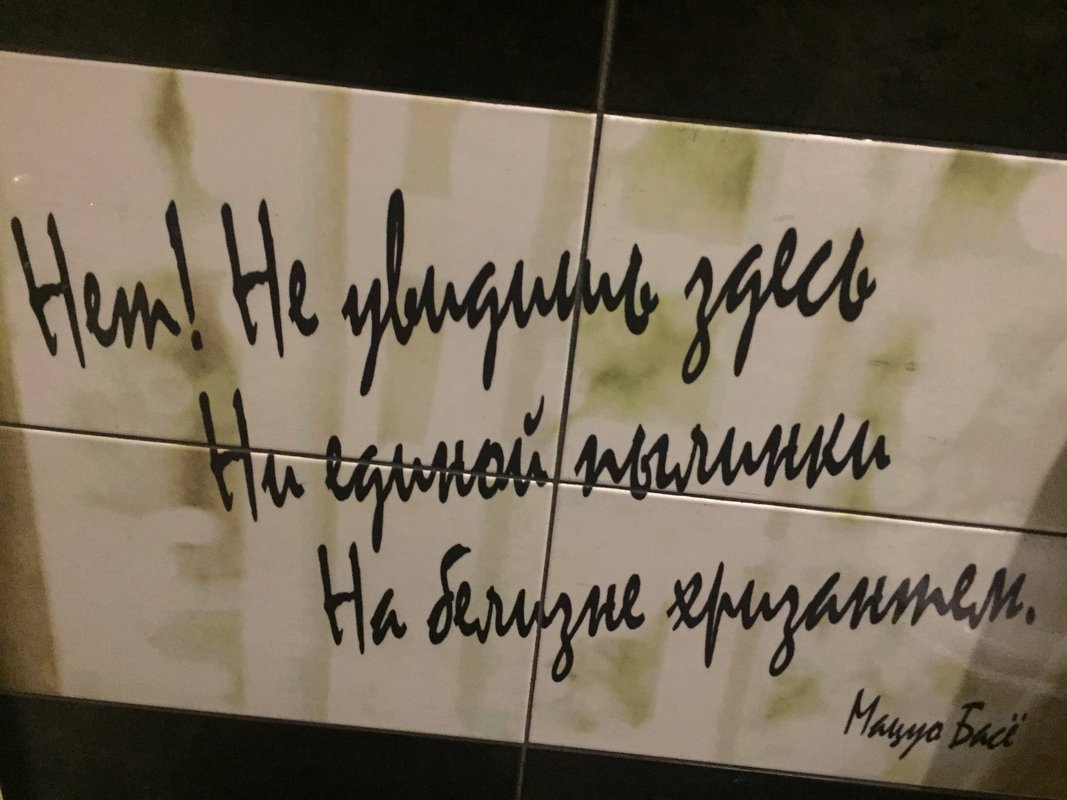 Нет! Не увидишь здесь
Ни единой пылинки
На белизне хризантем.
Мацуо Басё